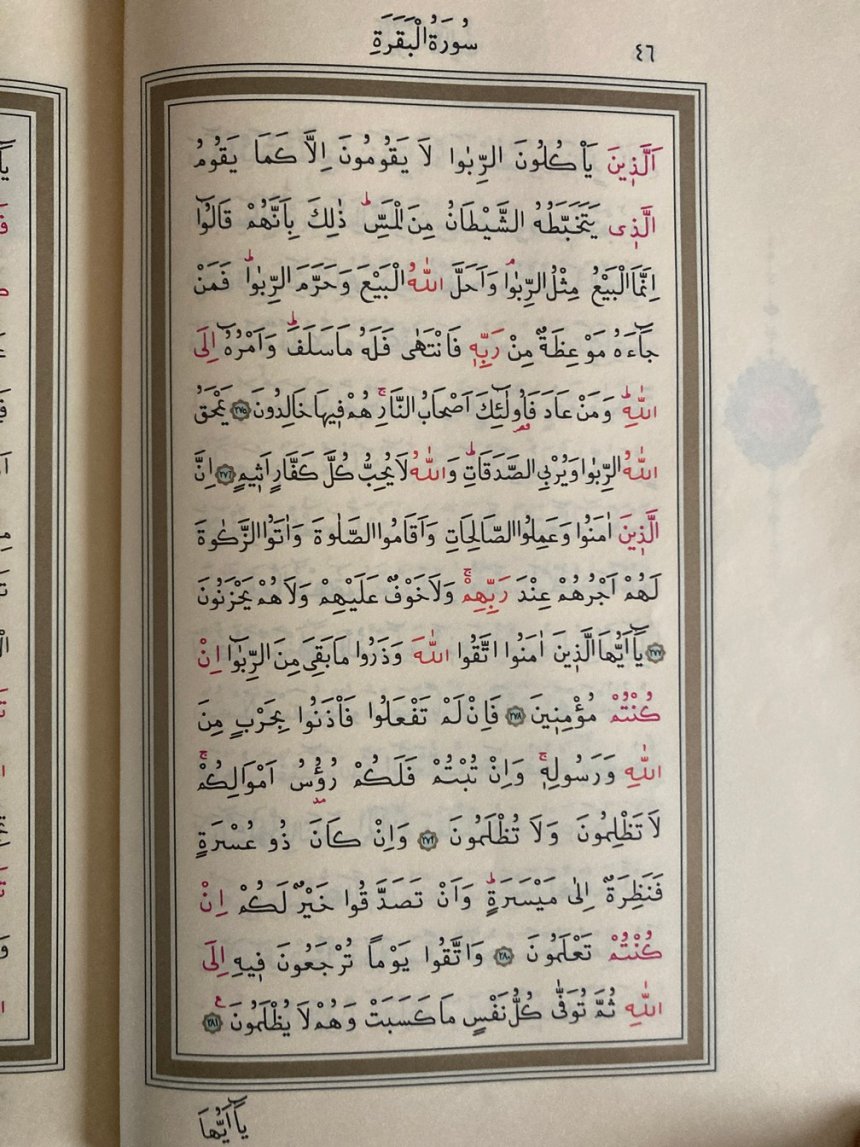 سُورَةُ الْبَقَرَةِ
٤٦
اَلَّذ۪ينَ يَأْكُلُونَ الرِّبٰوا لَا يَقُومُونَ اِلَّا كَمَا يَقُومُ
الَّذ۪ى يَتَخَبَّطُهُ الشَّيْطَانُ مِنَ الْمَسِّۜ ذٰلِكَ بِاَنَّهُمْ قَالُٓوا
اِنَّمَا الْبَيْعُ مِثْلُ الرِّبٰواۢ وَاَحَلَّ اللّٰهُ الْبَيْعَ وَحَرَّمَ الرِّبٰواۜ فَمَنْ
جَٓاءَهُ مَوْعِظَةٌ مِنْ رَبِّه۪ فَانْتَهٰى فَلَهُ مَا سَلَفَۜ وَاَمْرُهُٓ اِلَى
اللّٰهِۜ وَمَنْ عَادَ فَاُو۬لٰٓئِكَ اَصْحَابُ النَّارِۚ هُمْ ف۪يهَا خَالِدُونَ ﴿٢٧٥﴾ يَمْحَقُ
اللّٰهُ الرِّبٰوا وَيُرْبِي الصَّدَقَاتِۜ وَاللّٰهُ لَا يُحِبُّ كُلَّ كَفَّارٍ اَث۪يمٍ ﴿٢٧٦﴾ اِنَّ
الَّذ۪ينَ اٰمَنُوا وَعَمِلُوا الصَّالِحَاتِ وَاَقَامُوا الصَّلٰوةَ وَاٰتَوُا الزَّكٰوةَ
لَهُمْ اَجْرُهُمْ عِنْدَ رَبِّهِمْۚ وَلَا خَوْفٌ عَلَيْهِمْ وَلَا هُمْ يَحْزَنُونَ
﴿٢٧٧﴾ يَٓا اَيُّهَا الَّذ۪ينَ اٰمَنُوا اتَّقُوا اللّٰهَ وَذَرُوا مَا بَقِيَ مِنَ الرِّبٰٓوا اِنْ
كُنْتُمْ مُؤْمِن۪ينَ ﴿٢٧٨﴾ فَاِنْ لَمْ تَفْعَلُوا فَأْذَنُوا بِحَرْبٍ مِنَ
اللّٰهِ وَرَسُولِه۪ۚ وَاِنْ تُبْتُمْ فَلَكُمْ رُؤُ۫سُ اَمْوَالِكُمْۚ
لَا تَظْلِمُونَ وَلَا تُظْلَمُونَ ﴿٢٧٩﴾ وَاِنْ كَانَ ذُو عُسْرَةٍ
فَنَظِرَةٌ اِلٰى مَيْسَرَةٍۜ وَاَنْ تَصَدَّقُوا خَيْرٌ لَكُمْ اِنْ
كُنْتُمْ تَعْلَمُونَ ﴿٢٨٠﴾ وَاتَّقُوا يَوْماً تُرْجَعُونَ ف۪يهِ اِلَى
اللّٰهِ ثُمَّ تُوَفّٰى كُلُّ نَفْسٍ مَا كَسَبَتْ وَهُمْ لَا يُظْلَمُونَ۟ ﴿٢٨١﴾
يَٓا اَيُّهَا